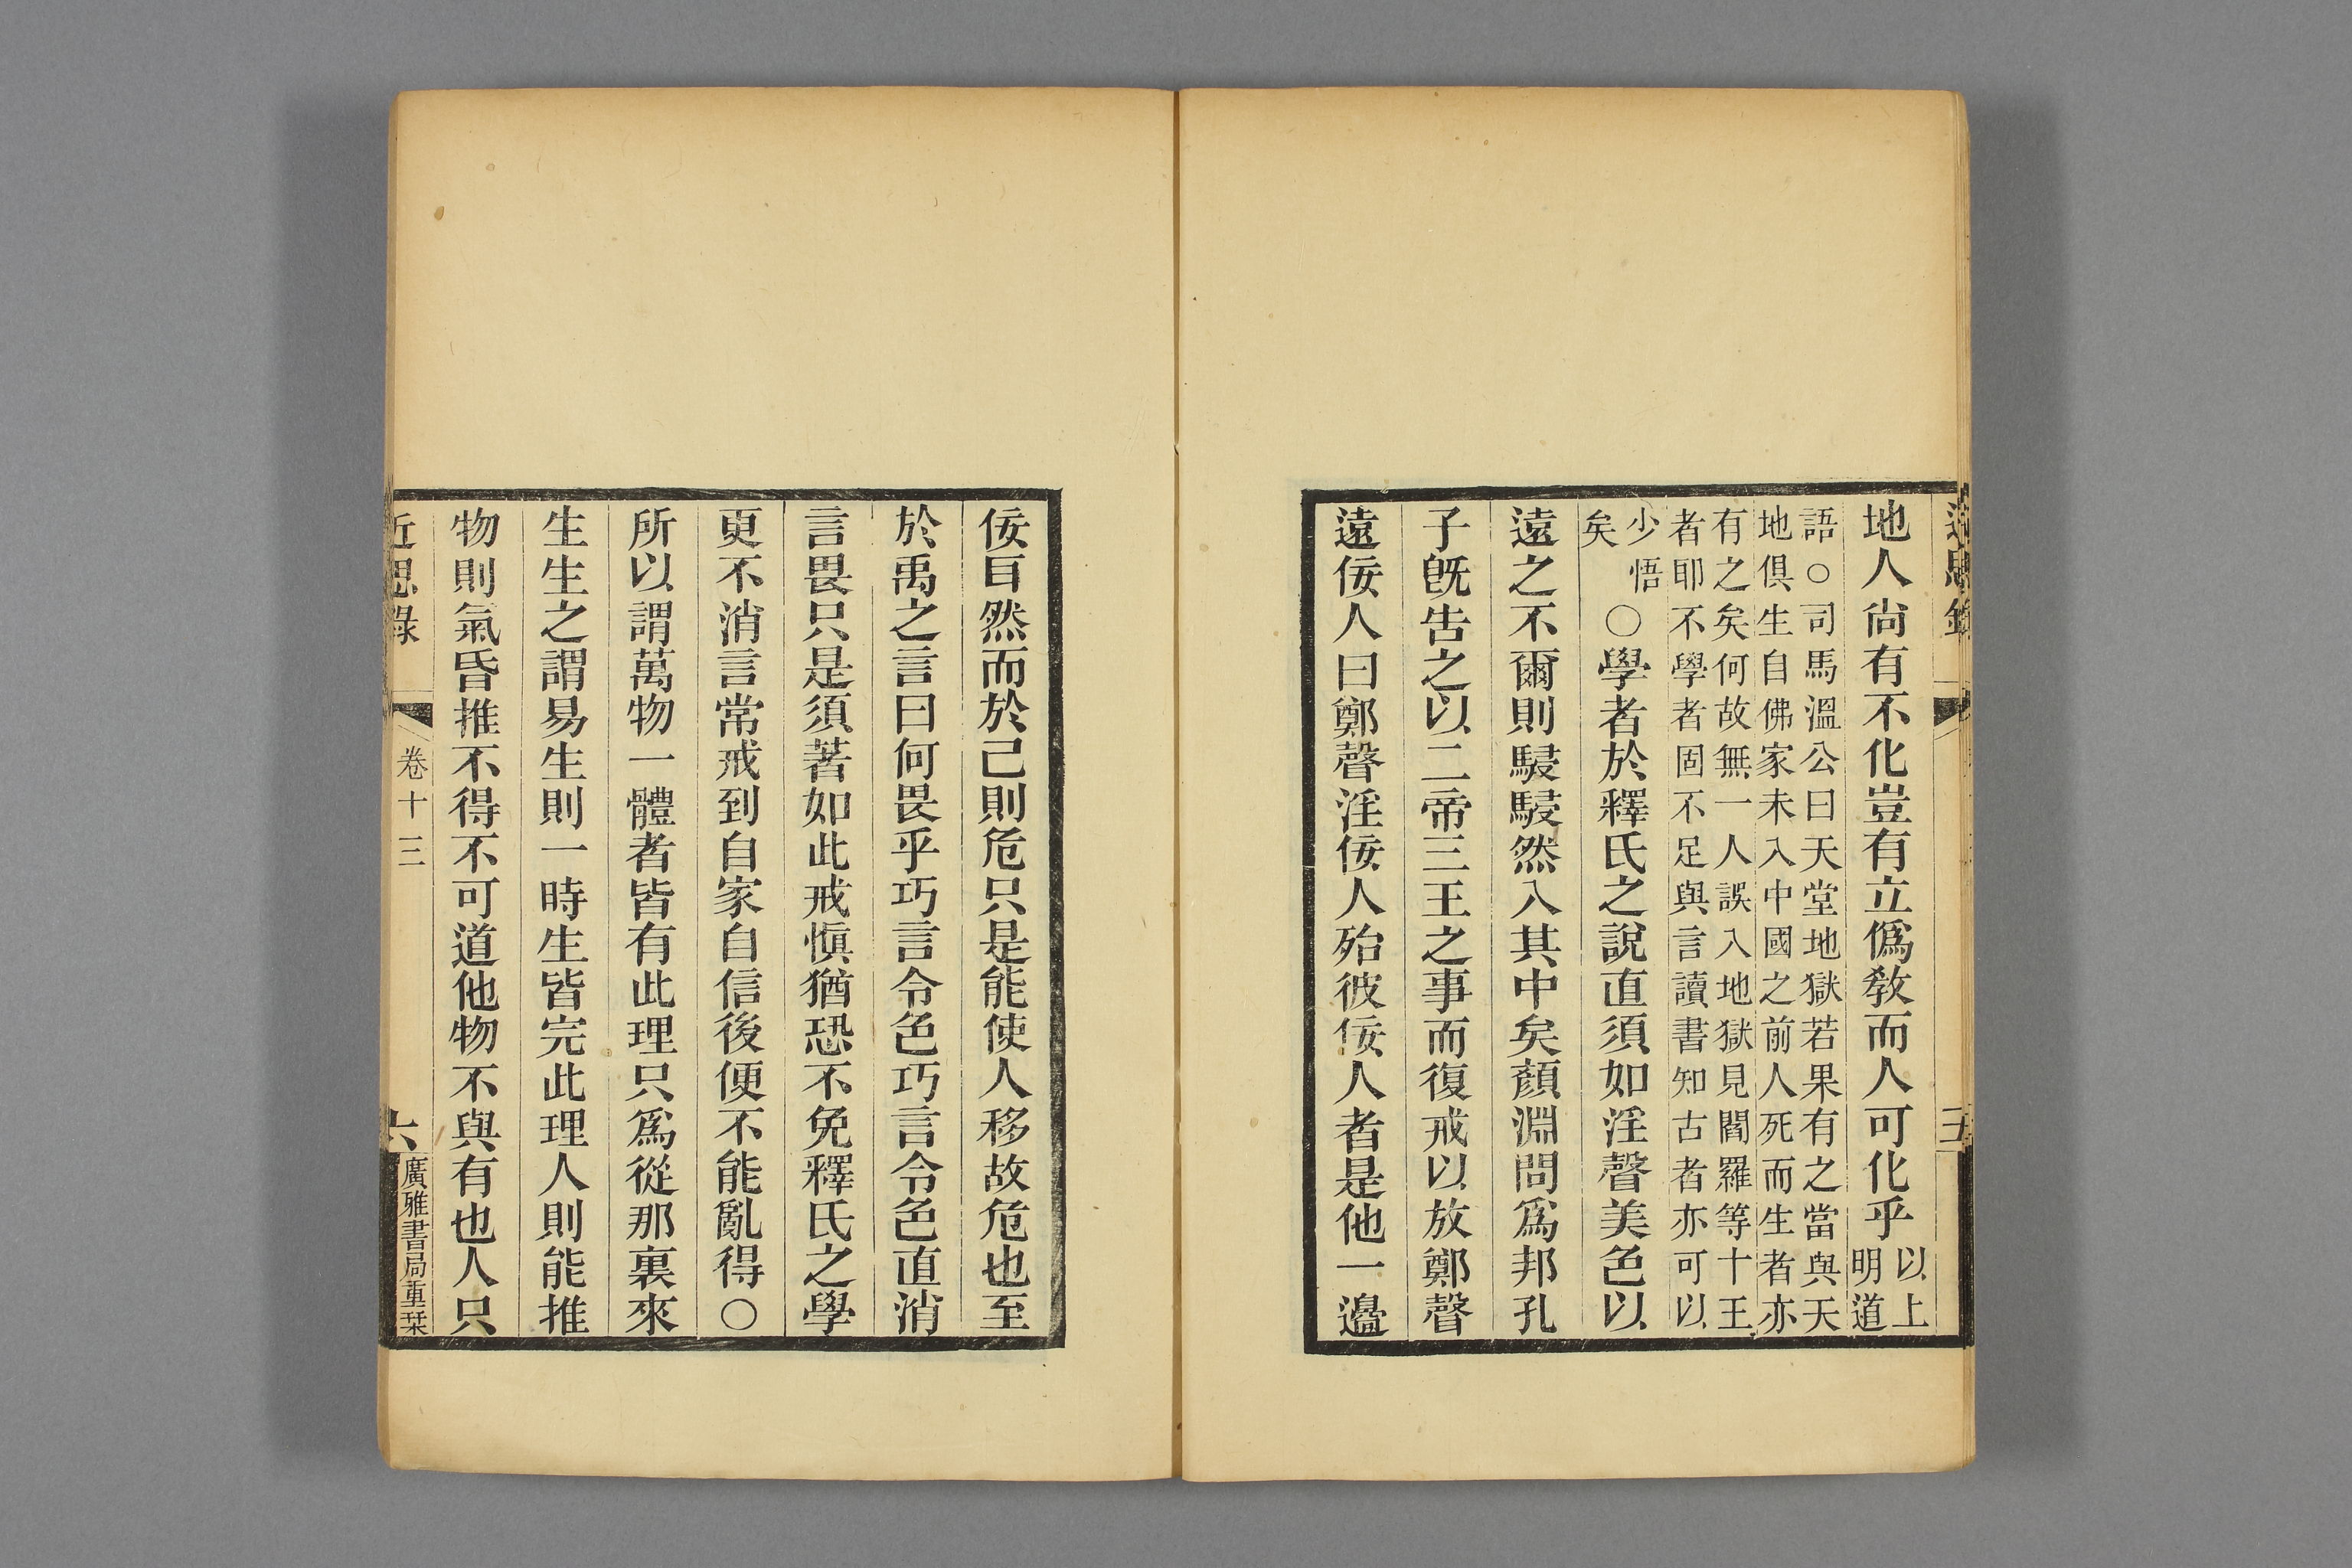 近思錄
五
地人尙有不化豈有立僞敎而人可化乎以上
明道
語○司馬溫公曰天堂地獄若果有之當與天
地俱生自佛家未入中國之前人死而生者亦
有之矣何故無一人誤入地獄見閻羅等十王
者耶不學者固不足與言讀書知古者亦可以
少悟
矣
○學者於釋氏之說直須如淫聲美色以
遠之不爾則駸駸然入其中矣顏淵問爲邦孔
子旣告之以二帝三王之事而復戒以放鄭聲
遠佞人曰鄭聲淫佞人殆彼佞人者是他一邊
佞耳然而於己則危只是能使人移故危也至
於禹之言曰何畏乎巧言令色巧言令色直消
言畏只是須著如此戒愼猶恐不免釋氏之學
更不消言常戒到自家自信後便不能亂得○
所以謂萬物一體者皆有此理只爲從那裏來
生生之謂易生則一時生皆完此理人則能推
物則氣昏推不得不可道他物不與有也人只
近思錄
卷十三
六
廣雅書局重栞